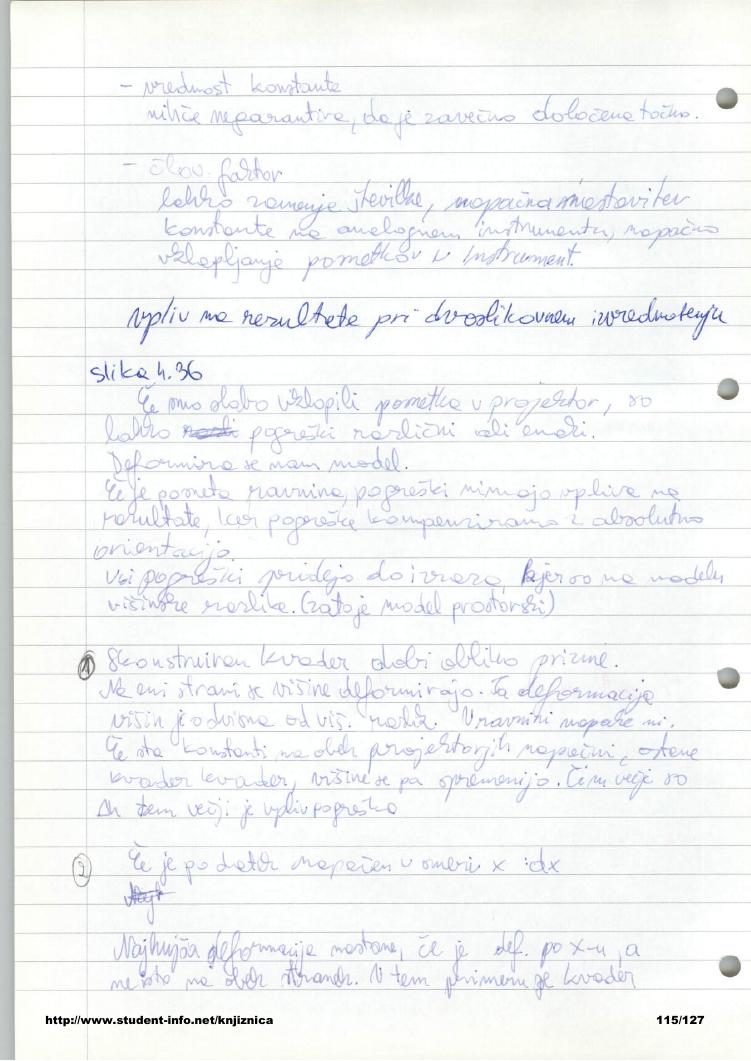 - vrednost konstante
nihče ne garantira, da je zavečno določena točno.
- člov. faktor
lahko zamenja številke, napačna nastavitev
konstante na analognem instrumentu, napačno
vklapljanje posnetkov v instrument.
vpliv na rezultate pri dvoslikovnem izvrednotenju
slika 4.36
Če smo slabo vklopili posnetka v projektor, so
lahko pogreški različni ali enaki.
Deformira se nam model.
Če je posneta ravnina, pogreški nimajo vpliva na
rezultate, ker pogreške kompenziramo z absolutno
orientacijo
Vsi pogreški pridejo do izraza, kjer so na modelu
višinske razlike. (zato je model prostorski)
1 Skonstruiran kvader dobi obliko prizme.
Na eni strani se višine deformirajo. Ta deformacija
višin je odvisna od viš. razlik. V ravnini napake ni.
Če sta konstanti na obeh projektorjih napačni, ostane
kvader kvader, višine se pa spremenijo. Čim večje so
Δh tem večji je vpliv pogreška
2 Če je podatek napačen v smeri x : dx
Najhujša deformacija nastane, če je def. po x-u, a
ne isto na obeh straneh. V tem primeru je kvader
http://www.student-info.net/knjiznica 115/127